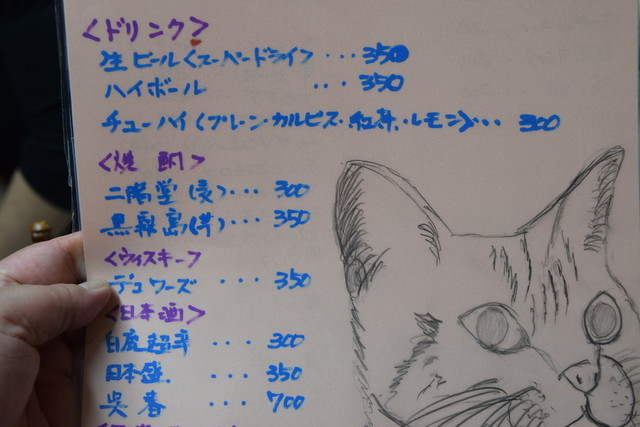 <ドリンク>
生ビール<スーパードライ> ・・・ 350
ハイボール ・・・ 350
チューハイ(プレーン・カルピス・紅茶・レモン)・・・ 300
<焼酎>
二階堂(麦)・・・ 300
黒霧島(芋)・・・ 350
<ウィスキー>
デュワーズ ・・・ 350
<日本酒>
白鹿超辛 ・・・ 300
日本盛 ・・・ 350
呉春 ・・・ 700